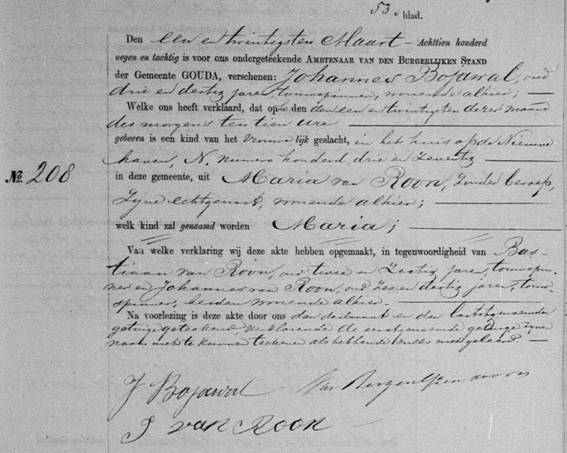 53e blad.
Den een en twintigsten Maart Achttien honderd
negen en tachtig is voor ons ondergeteekende AMBTENAAR VAN DEN BURGERLIJKEN STAND
der Gemeente GOUDA, verschenen: Johannes Bojawal, oud
drie en dertig jaren, touwspinner, wonende alhier;
Welke ons heeft verklaard, dat op den een en twintigsten dezer maand
des morgens ten tien ure
geboren is een kind van het vrouwelijk geslacht, in het huis op de Nieuwe
haven, N, numero honderd drie en zeventig
№. 208
in deze gemeente, uit Maria van Roon, zonder beroep,
zyne echtgenoot, wonende alhier;
welk kind zal genaamd worden Maria;
Van welke verklaring wij deze akte hebben opgemaakt, in tegenwoordigheid van Bas-
tiaan van Roon, oud twee en zestig jaren, touwspin-
ner en Johannes van Roon, oud zes en dertig jaren, touw-
spinner, beiden wonende alhier.
Na voorlezing is deze akte door ons den declarant en den laatstgenoemde
getuige geteekend, verklarende de eerstgenoemde getuige zyne
naam niet te kunnen teekenen als hebbende zulks niet geleerd
J Bojawal
J van Roon